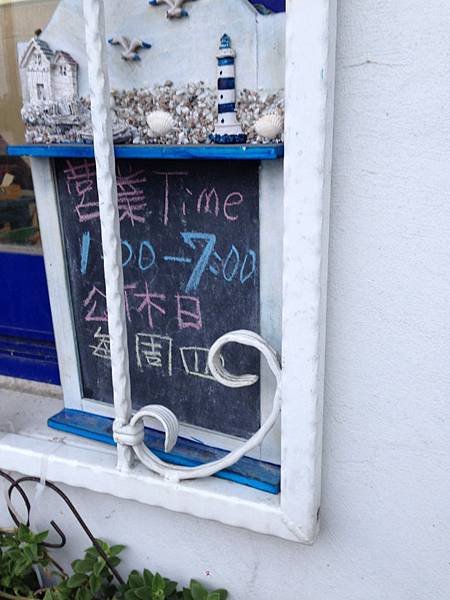 營業Time
1:00-7:00
公休日
每周四